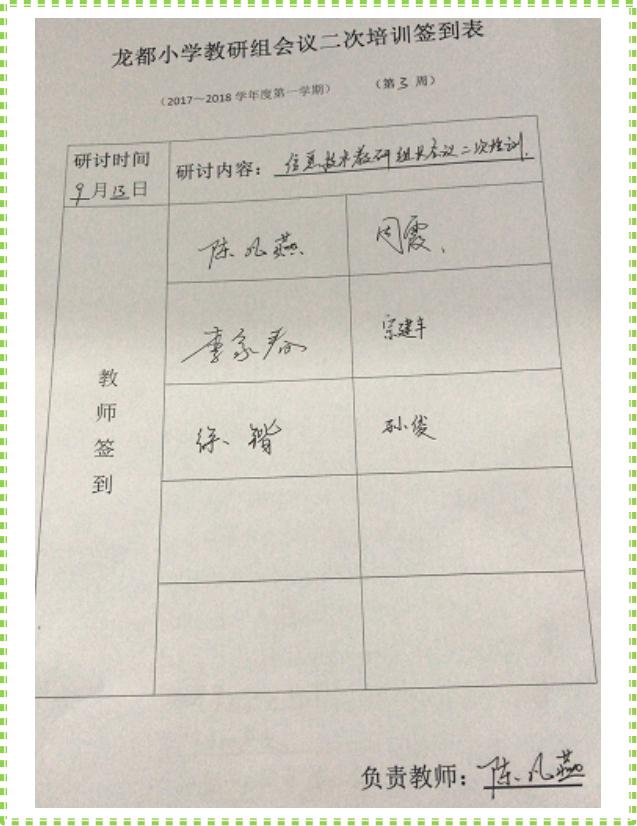 龙都小学教研组会议二次培训签到表
（2017～2018 学年度第一学期） （第 3 周）
研讨时间
9月13日
研讨内容：信息技术教研组长会议二次培训.
陈凡燕 周霞、
李家春 宗建车
徐锴 孙俊
教师签到
负责教师：陈凡燕